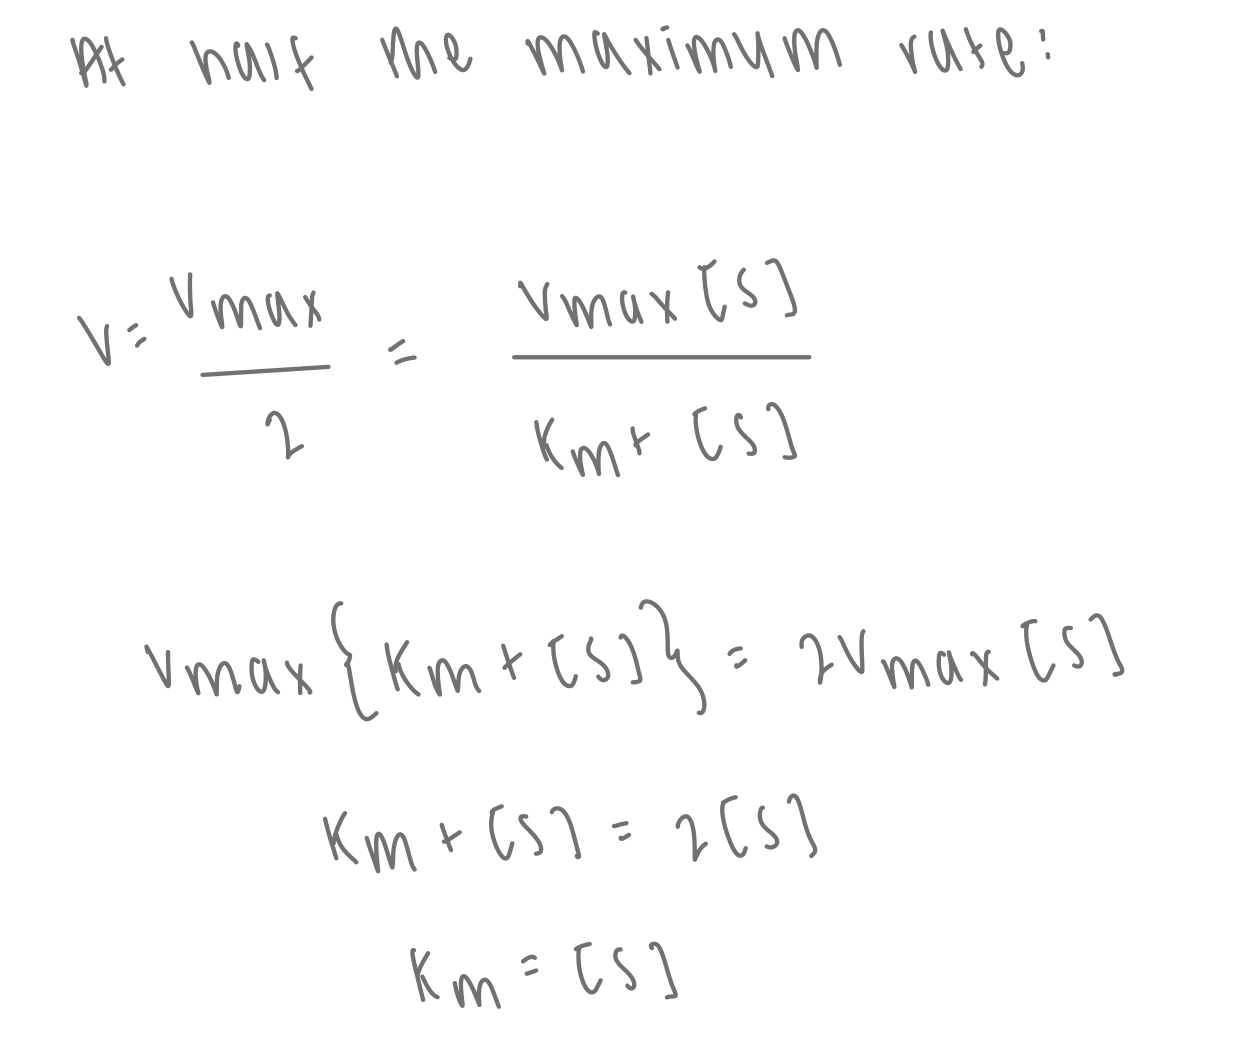 At half the maximum rate:
V = Vmax / 2 = Vmax [S] / Km + [S]
Vmax {Km + [S]} = 2Vmax [S]
Km + [S] = 2[S]
Km = [S]